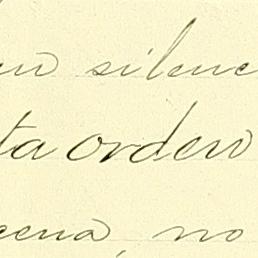 en silenc
ta orden
cena, no